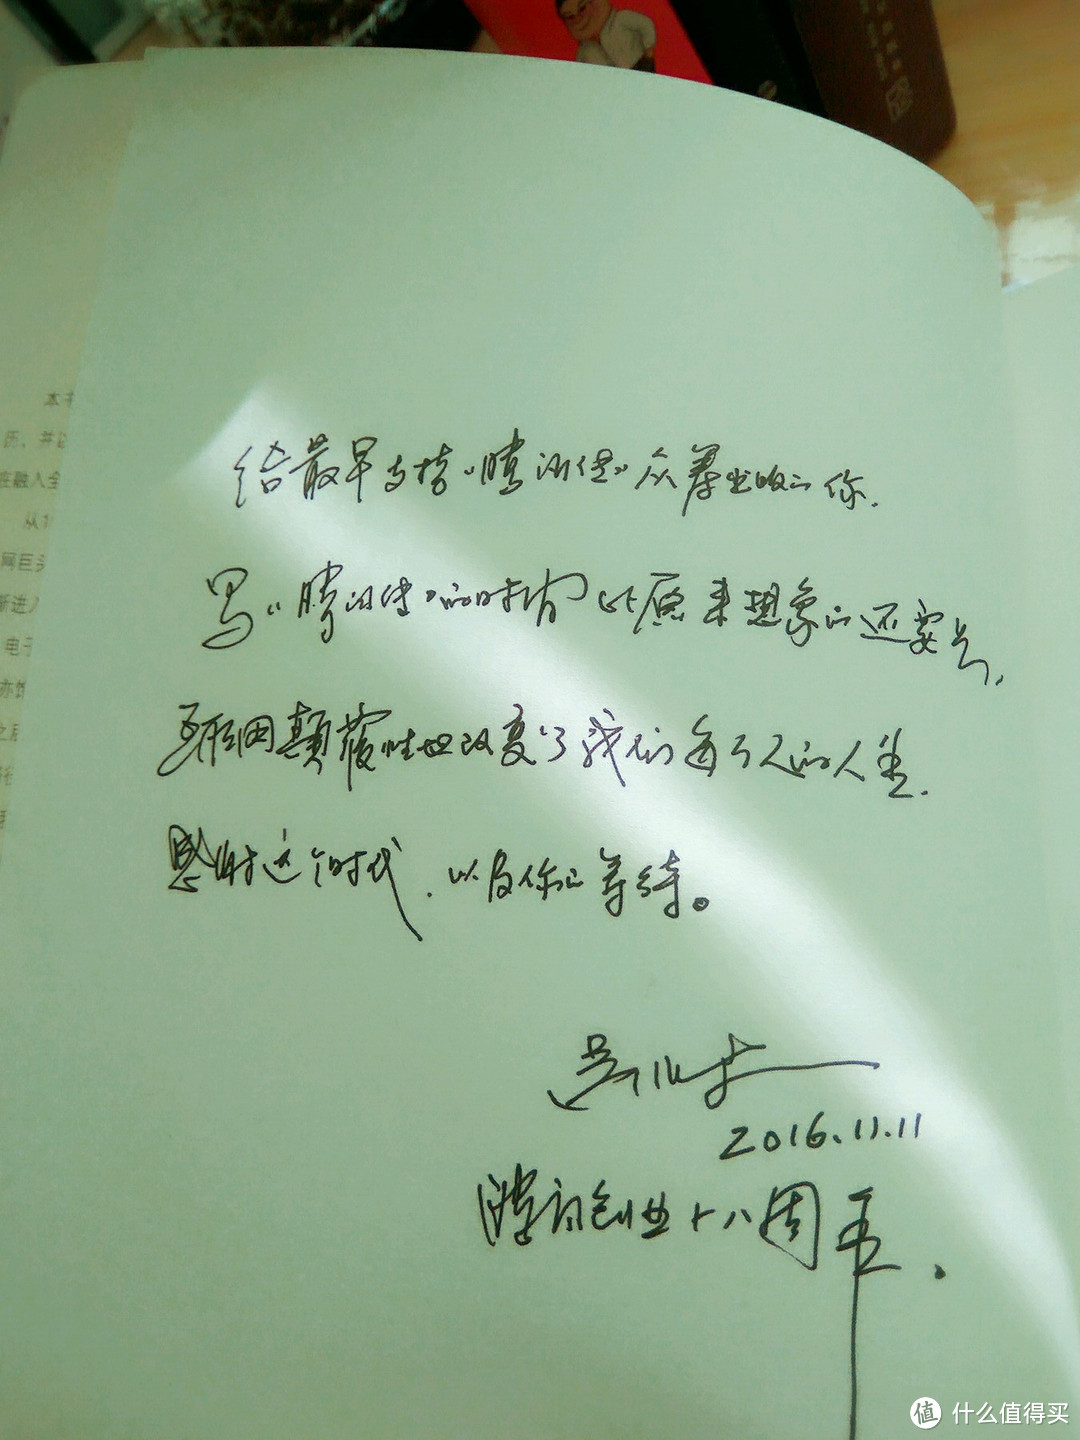 给最早支持《腾讯传》众筹的你.
写《腾讯传》的时间比原来想象的还要长,
互联网颠覆性地改变了我们每个人的人生.
感谢这个时代.以及你的等待。
吴晓波
2016.11.11
腾讯创业十八周年.
本书
历、并以
在融入全
从1
网巨头
新进入
电子
之后
值 什么值得买